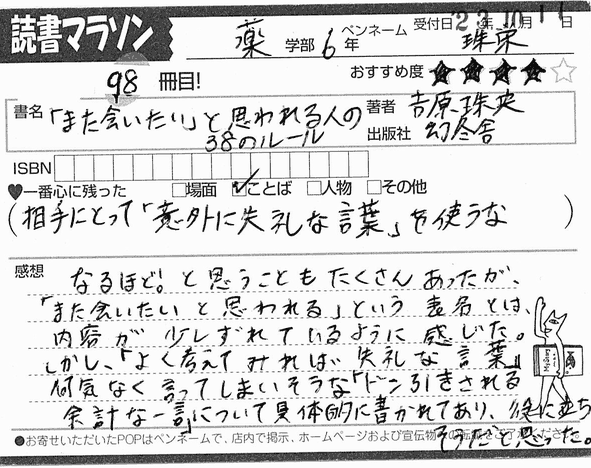 読書マラソン
薬 学部 6年
ペンネーム 珠栄
受付日 '23年10月11日
98 冊目!
おすすめ度 ★★★★☆
書名「また会いたい」と思われる人の
38のルール
著者 吉原珠央
出版社 幻冬舎
ISBN
♥一番心に残った □場面 ☑ことば □人物 □その他
(相手にとって「意外に失礼な言葉」を使うな)
感想
なるほど!と思うこともたくさんあったが、
「また会いたいと思われる」という表名とは、
内容が少しずれているように感じた。
しかし、「よく考えてみれば失礼な言葉」
何気なく言ってしまいそうな「ドン引きされる
余計な一言」について具体的に書かれてあり、役に立ち
そうだと思った。
●お寄せいただいたPOPはペンネームで、店内で掲示、ホームページおよび宣伝物への転載をご了承ください。